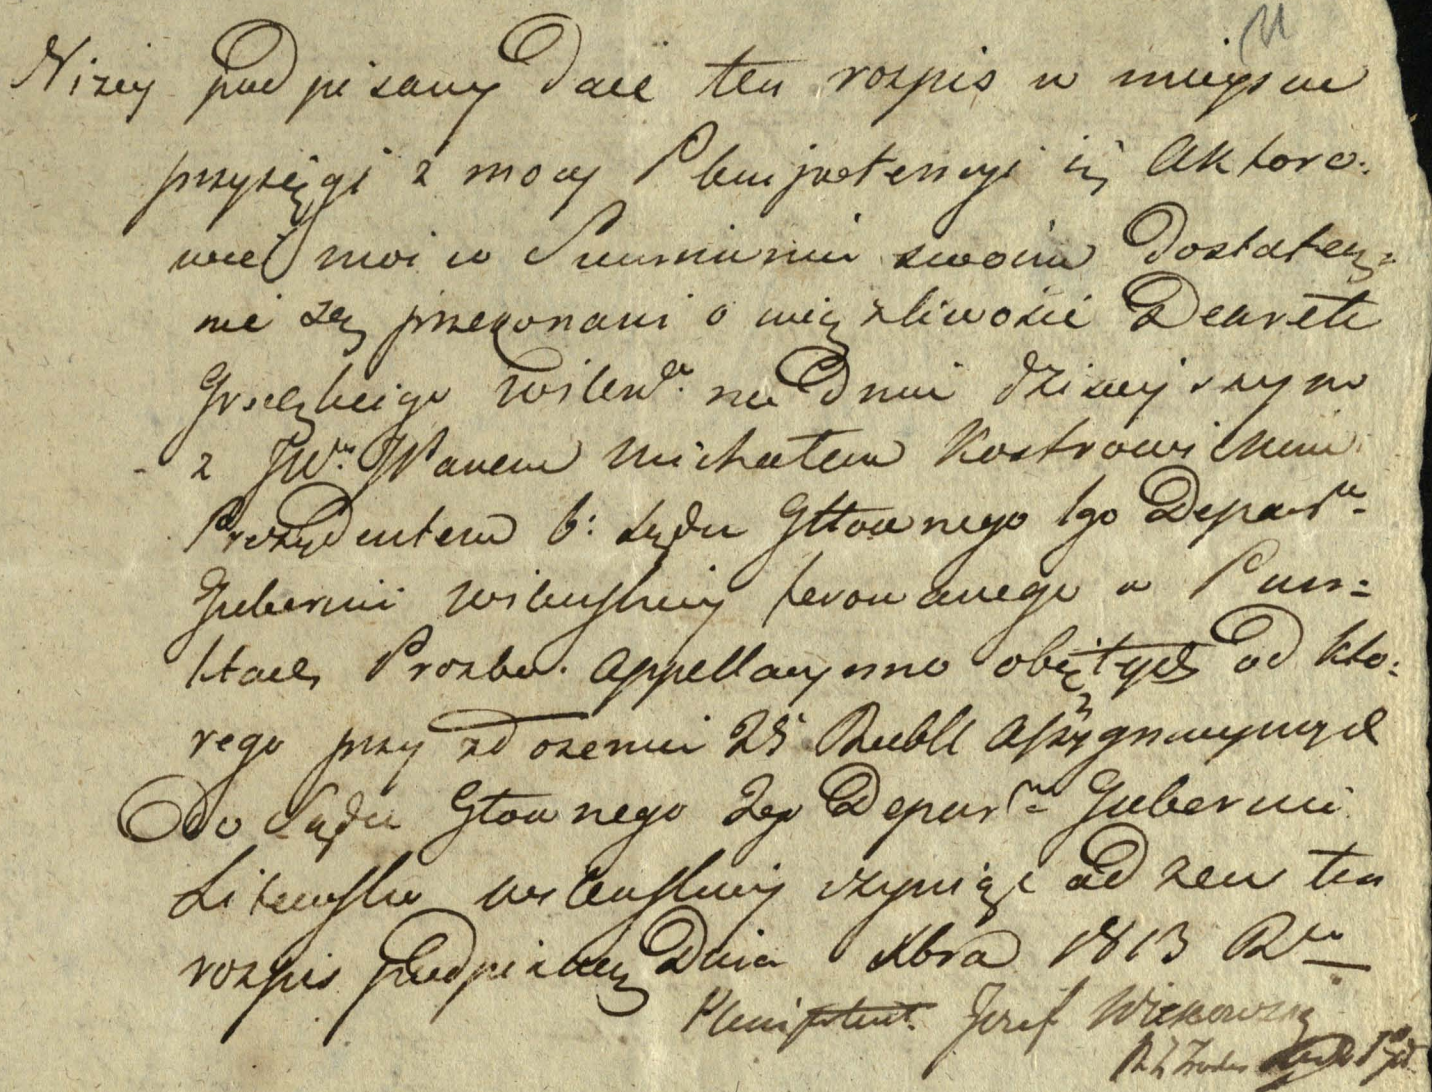 Niżey podpisany daie ten rospis w mieyscu
przysięgi z mocy Plenipotencyi iż Aktoro-
wie moi w Sumnieniu swoim dostatecz=
nie są przekonani o uciążliwości Dekretu
Grodzkiego Wileń. na dniu dzisieyszym
z JW. JPanem Michałem Kostrowickim
Prezydentem b: Sądu Głłownego 1go Depar.
Gubernii Wilenskiey ferowanego w Punk=
ktach Prozbą Appellacyino obiętych od kto=
rego przy złożeniu 25 Rubli Assygnacyinych
Do Sądu Głownego 2go Depar. Gubernii
Litewsko Wilenskiey czyniąc odzew ten
rospis podpisuię Dnia Xbra 1813 Ru
Plenipotent. Jozef